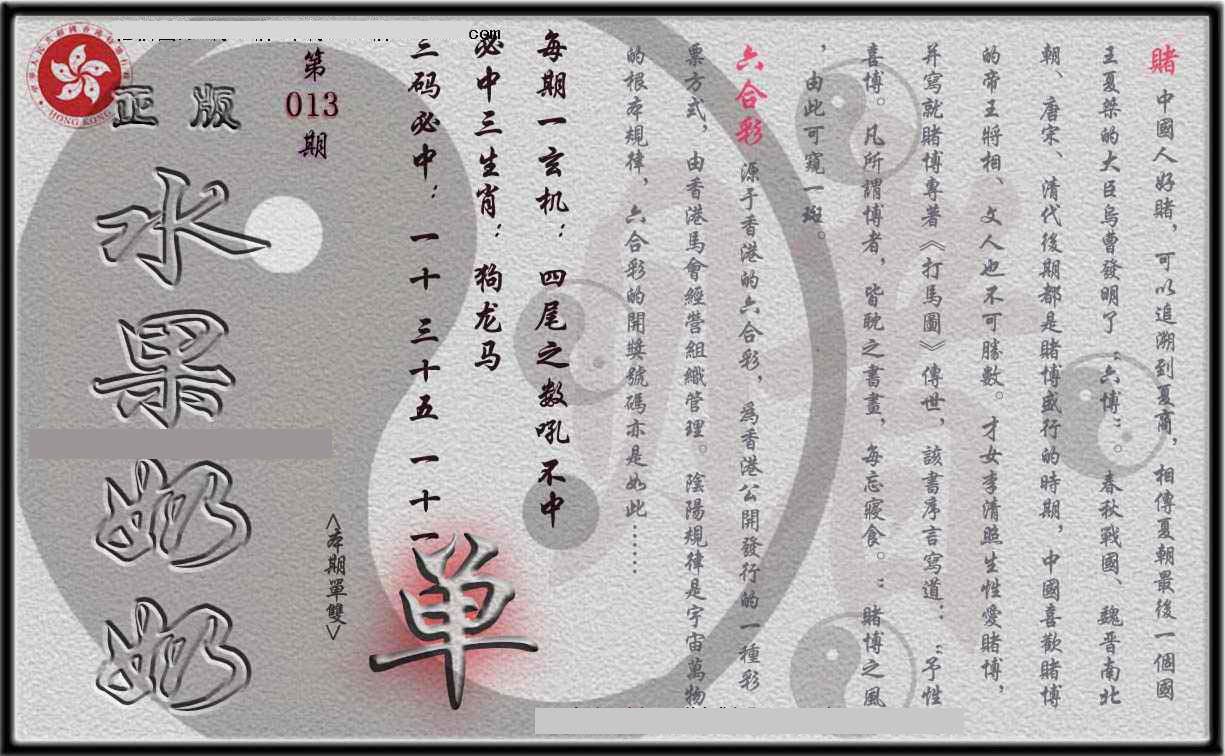 賭 中國人好賭，可以追溯到夏商，相傳夏朝最後一個國
王夏桀的大臣烏曹發明了“六博”。春秋戰國、魏晋南北
朝、唐宋、清代後期都是賭博盛行的時期，中國喜歡賭博
的帝王將相、文人也不可勝數。才女李清照生性愛賭博，
并寫就賭博專著《打馬圖》傳世，該書序言寫道：“予性
喜博。凡所謂博者，皆耽之書畫，每忘寢食。”賭博之風
，由此可窺一斑。
六合彩 源于香港的六合彩，爲香港公開發行的一種彩
票方式，由香港馬會經營組織管理。陰陽規律是宇宙萬物
的根本規律，六合彩的開獎號碼亦是如此……
每期一玄机：四尾之数吼不中
必中三生肖：狗龙马
三码必中：一十 三十五 一十一
单
<本期單雙>
第
013
期
正版
水果奶奶
com
HONG KONG